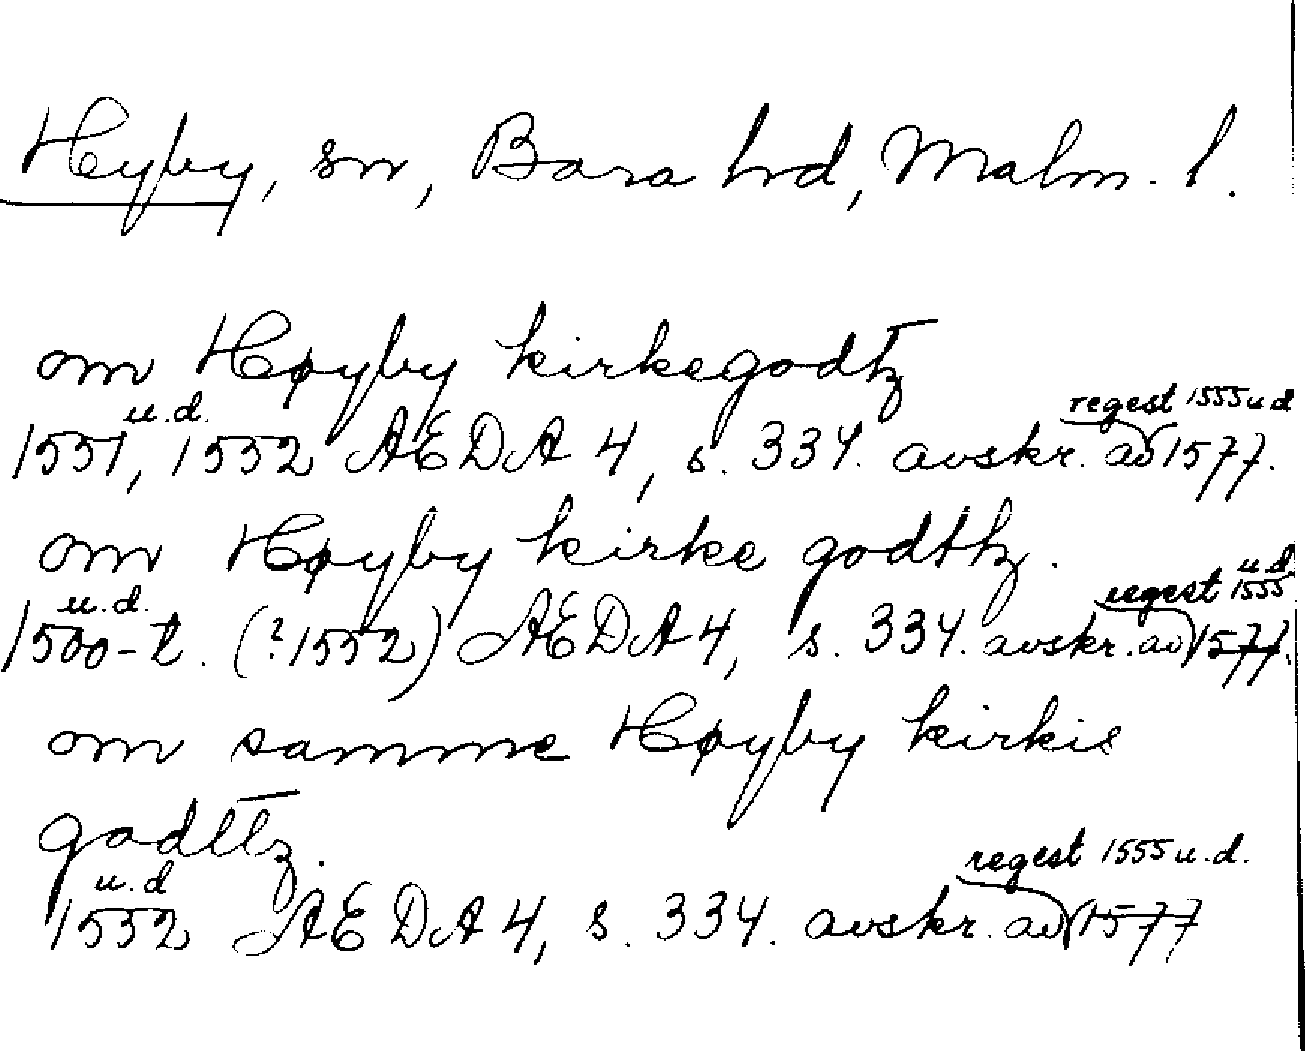 Hyby, sn, Bara hd, Malm. l.
om Høyby kirkegodtz
u.d. regest 1555 u d
1551, 1552 AEDA 4, s. 334. avskr. av 1577.
om Høyby kirke godttz.
u.d. regest 1555 u.d.
1500-t. (?1552) AEDA 4, s. 334. avskr. av 1577.
om samme Høyby kirkie
godttz.
u.d regest 1555 u.d.
1552 AEDA 4, s. 334. avskr. av 1577